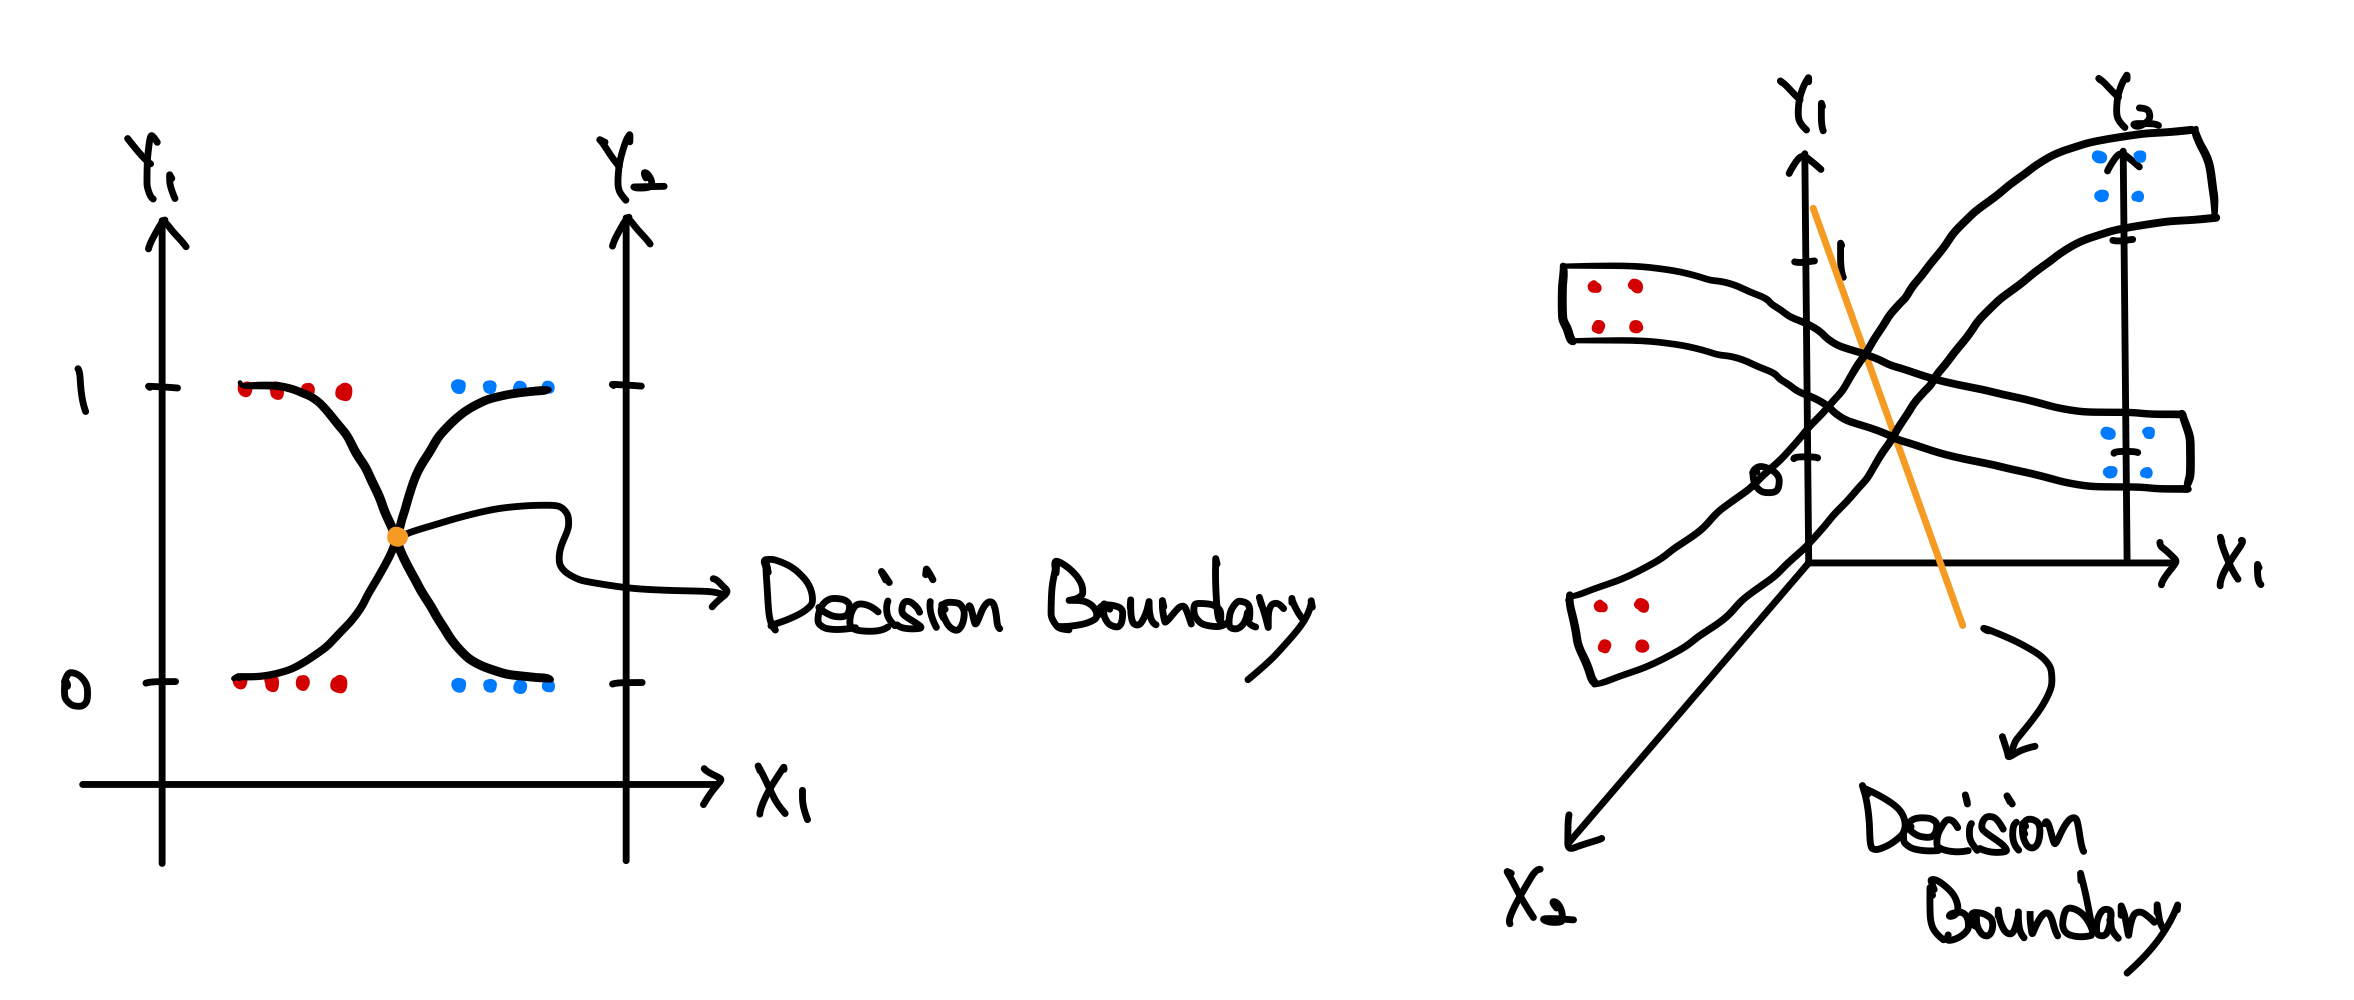 Y1
Y2
1
0
Decision Boundary
X1
Y1
Y2
1
0
X1
X2
Decision
Boundary